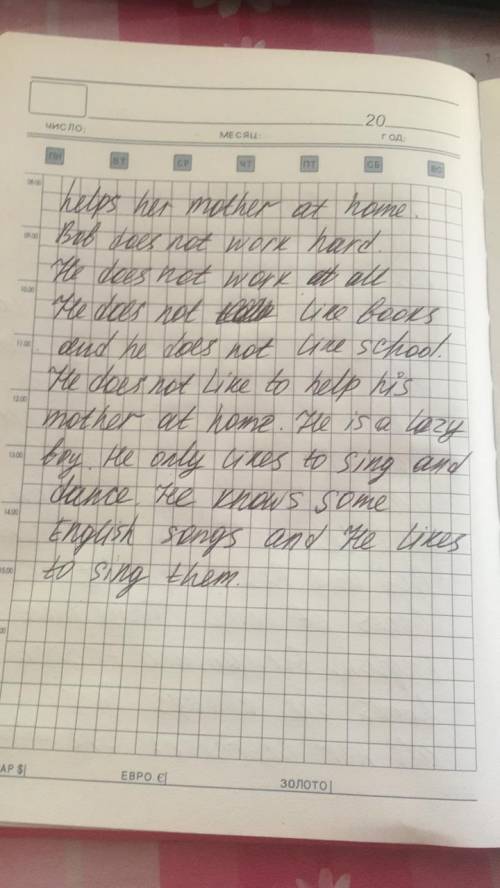 20
ЧИСЛО: МЕСЯЦ: ГОД:
ПН ВТ СР ЧТ ПТ СБ ВС
08.00
helps her mother at home.
09.00
Bob does not work hard.
He does not work at all
10.00
He does not like books
11.00
and he does not like school.
He does not like to help his
12.00
mother at home. He is a lazy
13.00
boy. He only likes to sing and
dance. He knows some
14.00
English songs and He likes
15.00
to sing them.
АР $| ЕВРО €| ЗОЛОТО|